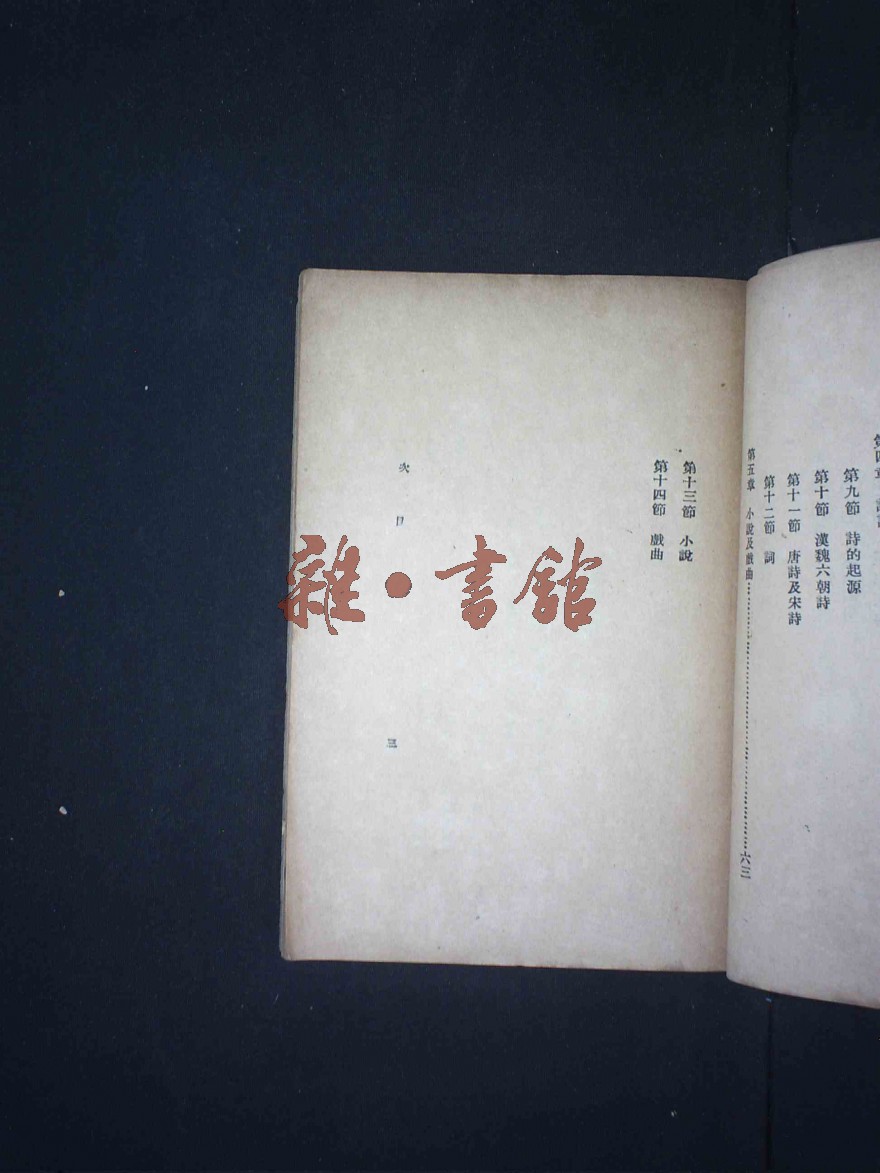 第四章
第九節　詩的起源
第十節　漢魏六朝詩
第十一節　唐詩及宋詩
第十二節　詞
第五章　小說及戲曲……………………六三
第十三節　小說
第十四節　戲曲
次　目
三
雜·書館